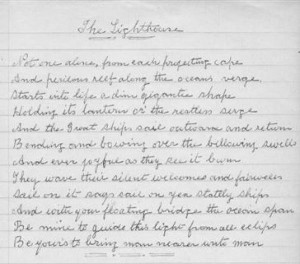 The Lighthouse
Not one alone, from each projecting cape
And perilous reef along the oceans verge,
Starts into life a dim gigantic shape
Holding its lantern o'er the restless surge
And the Great ships sail outward and return
Bending and bowing over the billowing swells
And ever joyful as they see it burn
They wave their silent welcomes and farewells
Sail on it says sail on yea stately ships
And with your floating bridge the ocean span
Be mine to guide this light from all eclips
Be yours to bring man nearer unto man